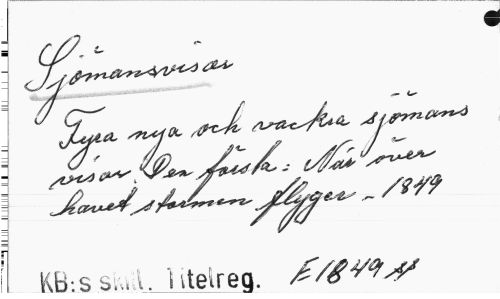 Sjömansvisor
Fyra nya och vackra sjömans
visor. Den första: När över
havet stormen flyger - 1849
KB:s skill. Titelreg. E 1849